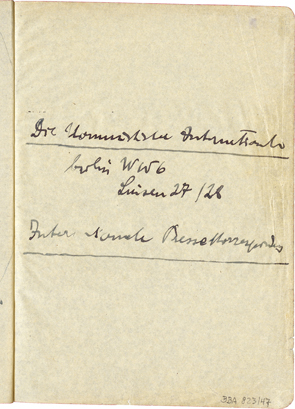 Die Kommunistische Internationale
Berlin NW 6
Luisen 27/28
Internationale Pressekorrespondenz
BBA 823/47